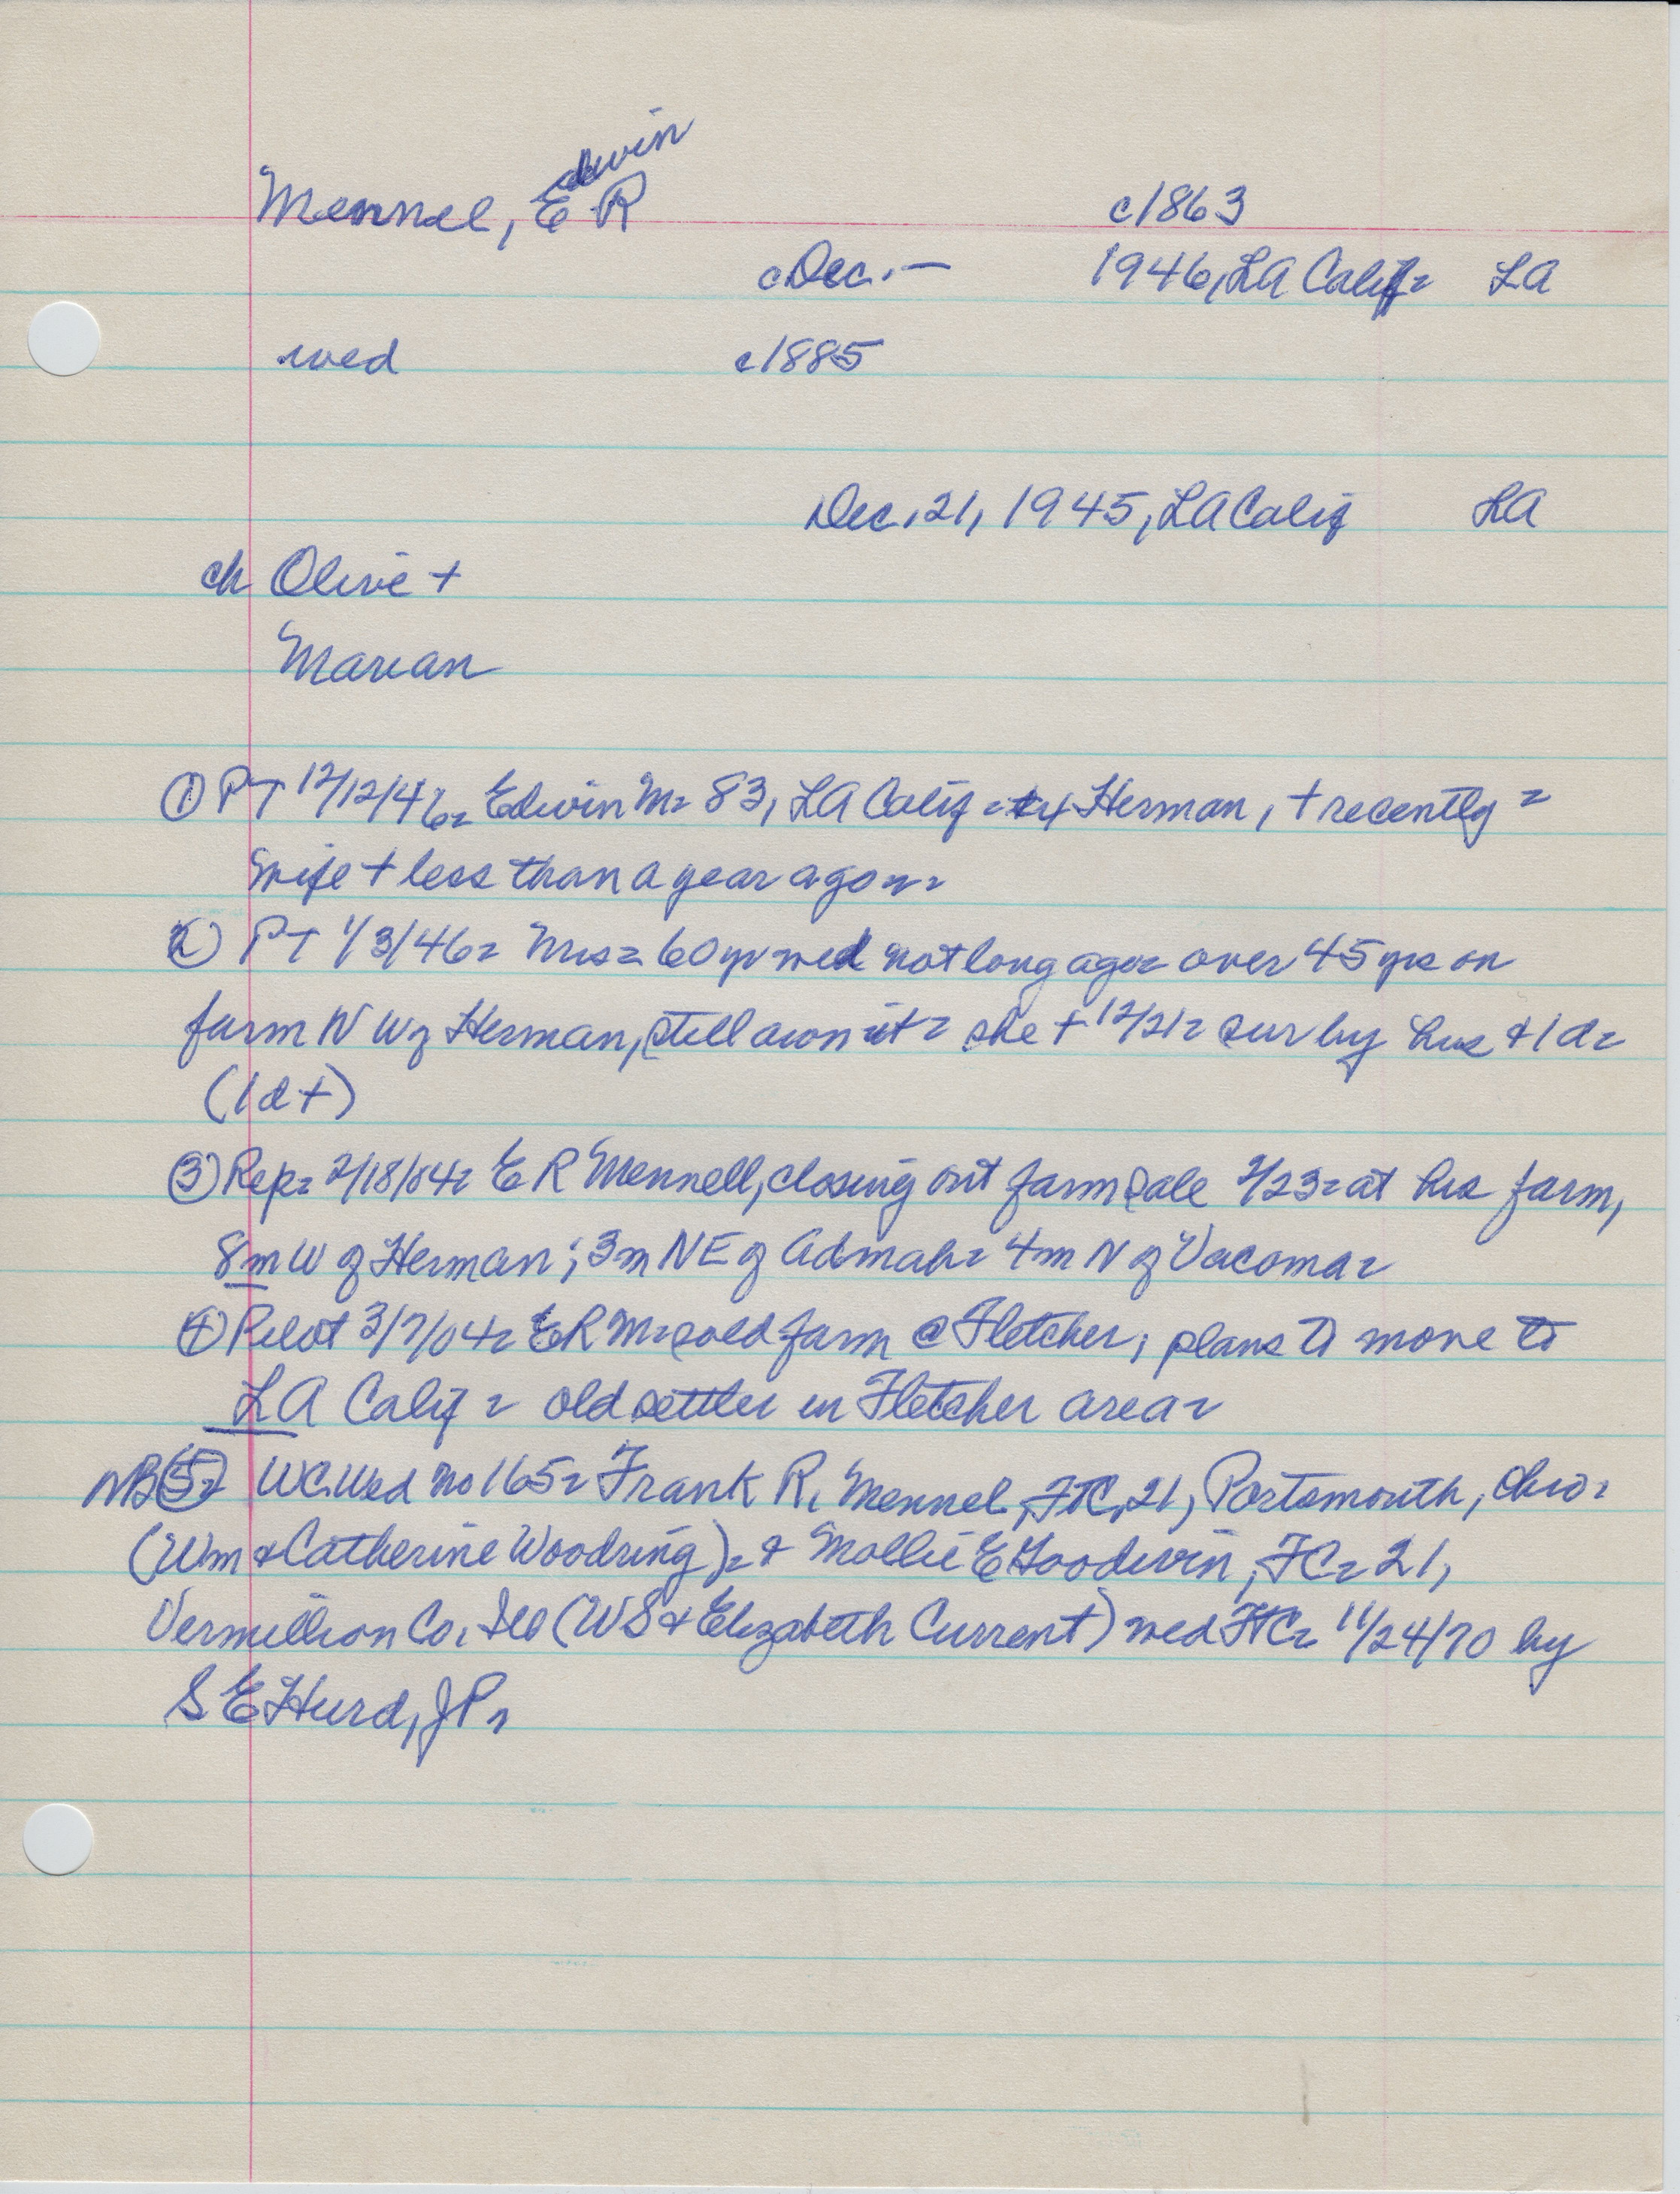 Edwin
Mennel, E R c1863
cDec. — 1946, LA Calif= LA
wed c1885
Dec. 21, 1945, LA Calif LA
ch Olive +
Marian
① PT 12/12/46= Edwin M= 83, LA Calif= Herman, + recently=
wife + less than a year ago=
② PT 1/3/46= Mrs= 60 yr wed not long ago= over 45 yrs on
farm N W of Herman, still own it= she + 12/21= sur by hus & 1 d=
(1 d +)
③ Rep= 2/18/04= E R Mennell, closing out farm sale 2/23= at his farm,
8m W of Herman; 3m NE of Admah= 4m N of Vacoma=
④ Pilot 3/7/04= E R M= sold farm @ Fletcher; plans to move to
LA Calif= old settler in Fletcher area=
NB ⑤= WC Wed no 165= Frank R. Mennel, FtC, 21, Portsmouth, Ohio=
(Wm & Catherine Woodring)= & Mollie E Goodwin, FC= 21,
Vermillion Co. Ill (WS & Elizabeth Current) wed FtC= 11/24/70 by
S E Hurd, JP=